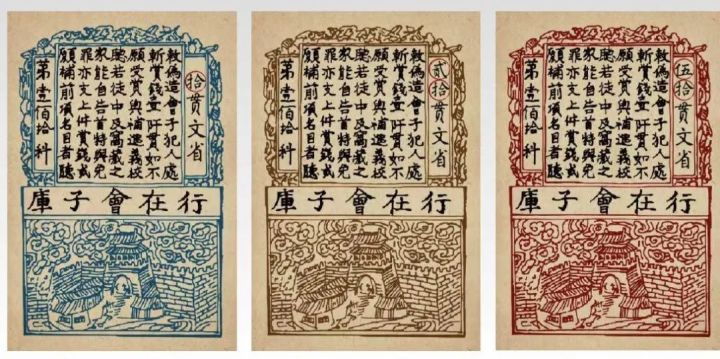 拾贯文省
敕偽造會子犯人處
斬賞錢壹阡貫如不
願受賞與補進義校
聽若徒中及窩藏之
家能自告首特與免
罪亦支上件賞錢或
願補前項名目者聽
第壹佰拾料
行在會子庫
貳拾贯文省
敕偽造會子犯人處
斬賞錢壹阡貫如不
願受賞與補進義校
聽若徒中及窩藏之
家能自告首特與免
罪亦支上件賞錢或
願補前項名目者聽
第壹佰拾料
行在會子庫
伍拾贯文省
敕偽造會子犯人處
斬賞錢壹阡貫如不
願受賞與補進義校
聽若徒中及窩藏之
家能自告首特與免
罪亦支上件賞錢或
願補前項名目者聽
第壹佰拾料
行在會子庫